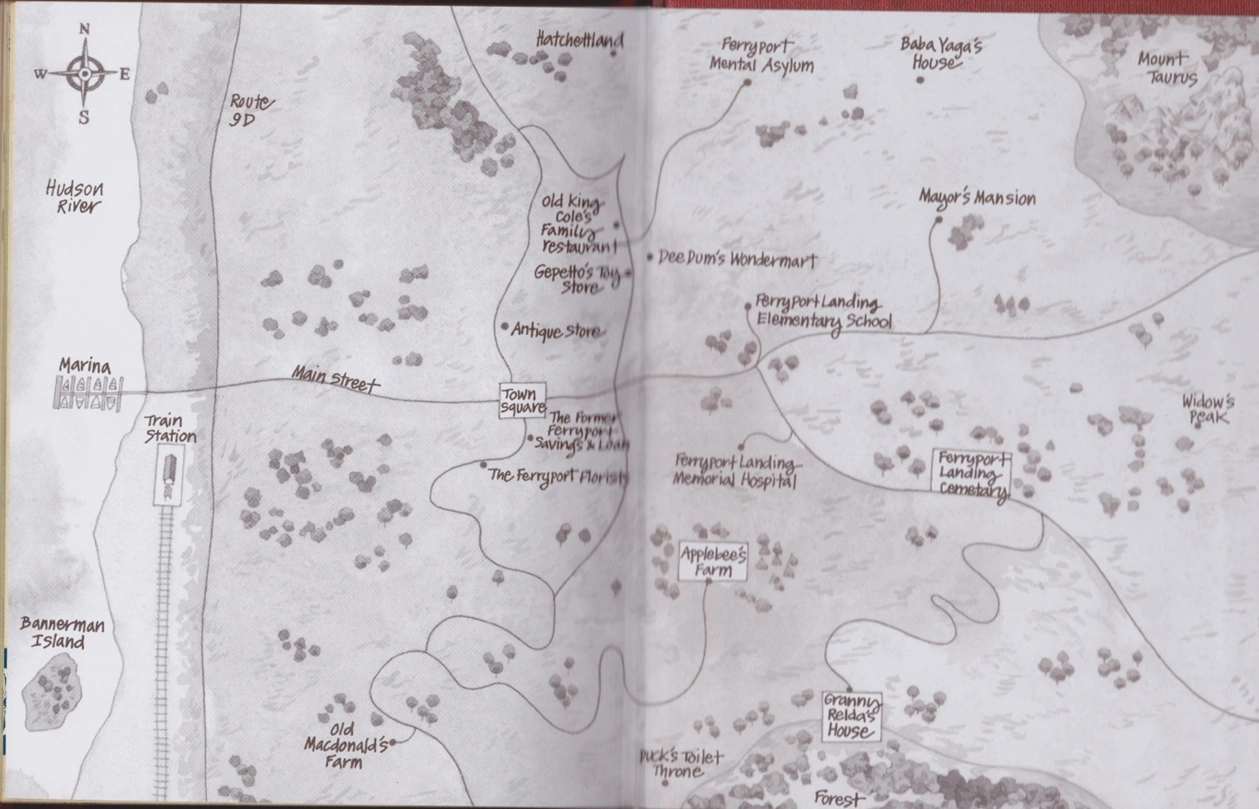 N
W E
S
Hudson
River
Route
9D
Hatchettland
Ferryport
Mental Asylum
Baba Yaga's
House
Mount
Taurus
Old King
Cole's
Family
restaurant
Mayor's Mansion
Dee Dum's Wondermart
Gepetto's Toy
Store
Antique Store
Ferryport Landing
Elementary School
Marina
Main Street
Town
Square
Train
Station
The Former
Ferryport
Savings & Loan
The Ferryport Florists
Ferryport Landing
Memorial Hospital
Ferryport
Landing
Cemetary
Widow's
Peak
Applebee's
Farm
Bannerman
Island
Old
Macdonald's
Farm
Granny
Relda's
House
Puck's Toilet
Throne
Forest